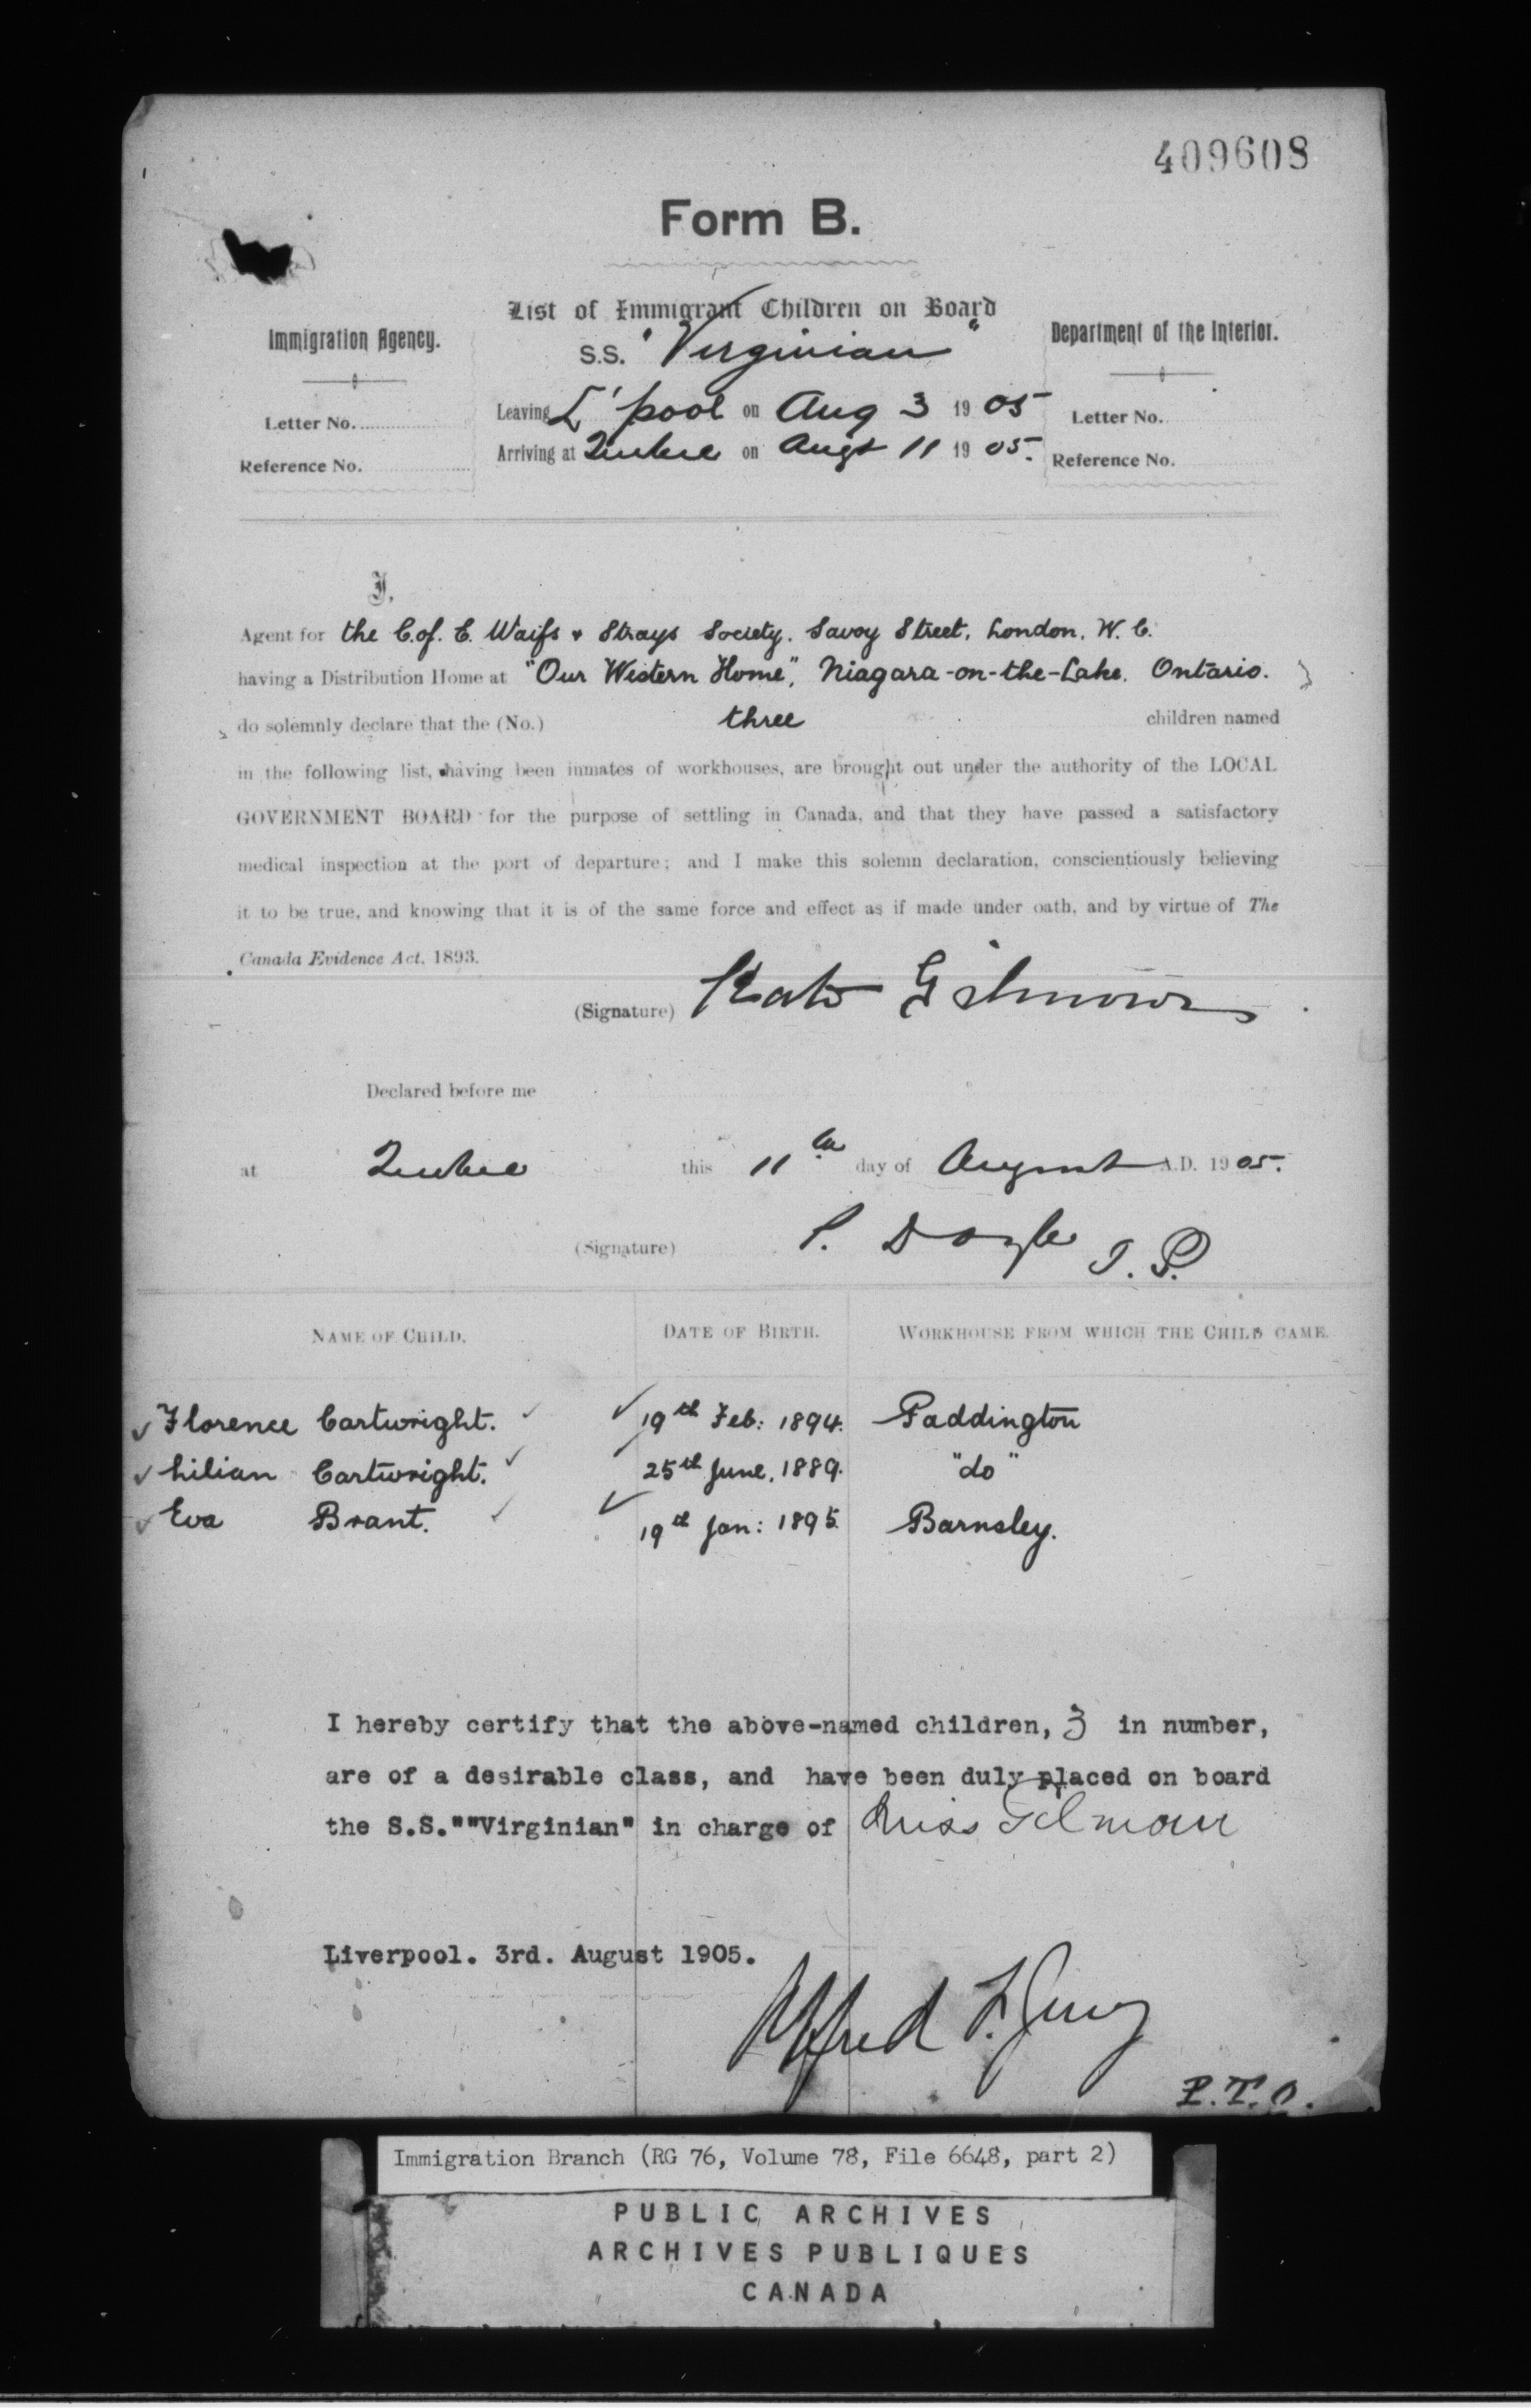 409608
Form B.
List of Immigrant Children on Board
Immigration Agency.
S.S. "Virginian"
Department of the Interior.
Leaving L'pool on Aug 3 1905
Letter No.
Letter No.
Arriving at Quebec on Augt 11 1905.
Reference No.
Reference No.
I,
Agent for the C. of. E. Waifs & Strays Society. Savoy Street, London. W. C.
having a Distribution Home at "Our Western Home", Niagara-on-the-Lake. Ontario.
do solemnly declare that the (No.) three children named
in the following list, having been inmates of workhouses, are brought out under the authority of the LOCAL
GOVERNMENT BOARD for the purpose of settling in Canada, and that they have passed a satisfactory
medical inspection at the port of departure; and I make this solemn declaration, conscientiously believing
it to be true, and knowing that it is of the same force and effect as if made under oath, and by virtue of The
Canada Evidence Act, 1893.
(Signature) Kate Gilmour
Declared before me
at Quebec this 11th day of August A.D. 1905.
(Signature) P. Doyle J. P.
NAME OF CHILD. DATE OF BIRTH. WORKHOUSE FROM WHICH THE CHILD CAME.
Florence Cartwright. 19th Feb: 1894. Paddington
Lilian Cartwright. 25th June, 1889. "do"
Eva Brant. 19th Jan: 1895 Barnsley.
I hereby certify that the above-named children, 3 in number,
are of a desirable class, and have been duly placed on board
the S.S.""Virginian" in charge of Miss Gilmour
Liverpool. 3rd. August 1905.
Alfred F. Jury
P.T.O.
Immigration Branch (RG 76, Volume 78, File 6648, part 2)
PUBLIC ARCHIVES
ARCHIVES PUBLIQUES
CANADA